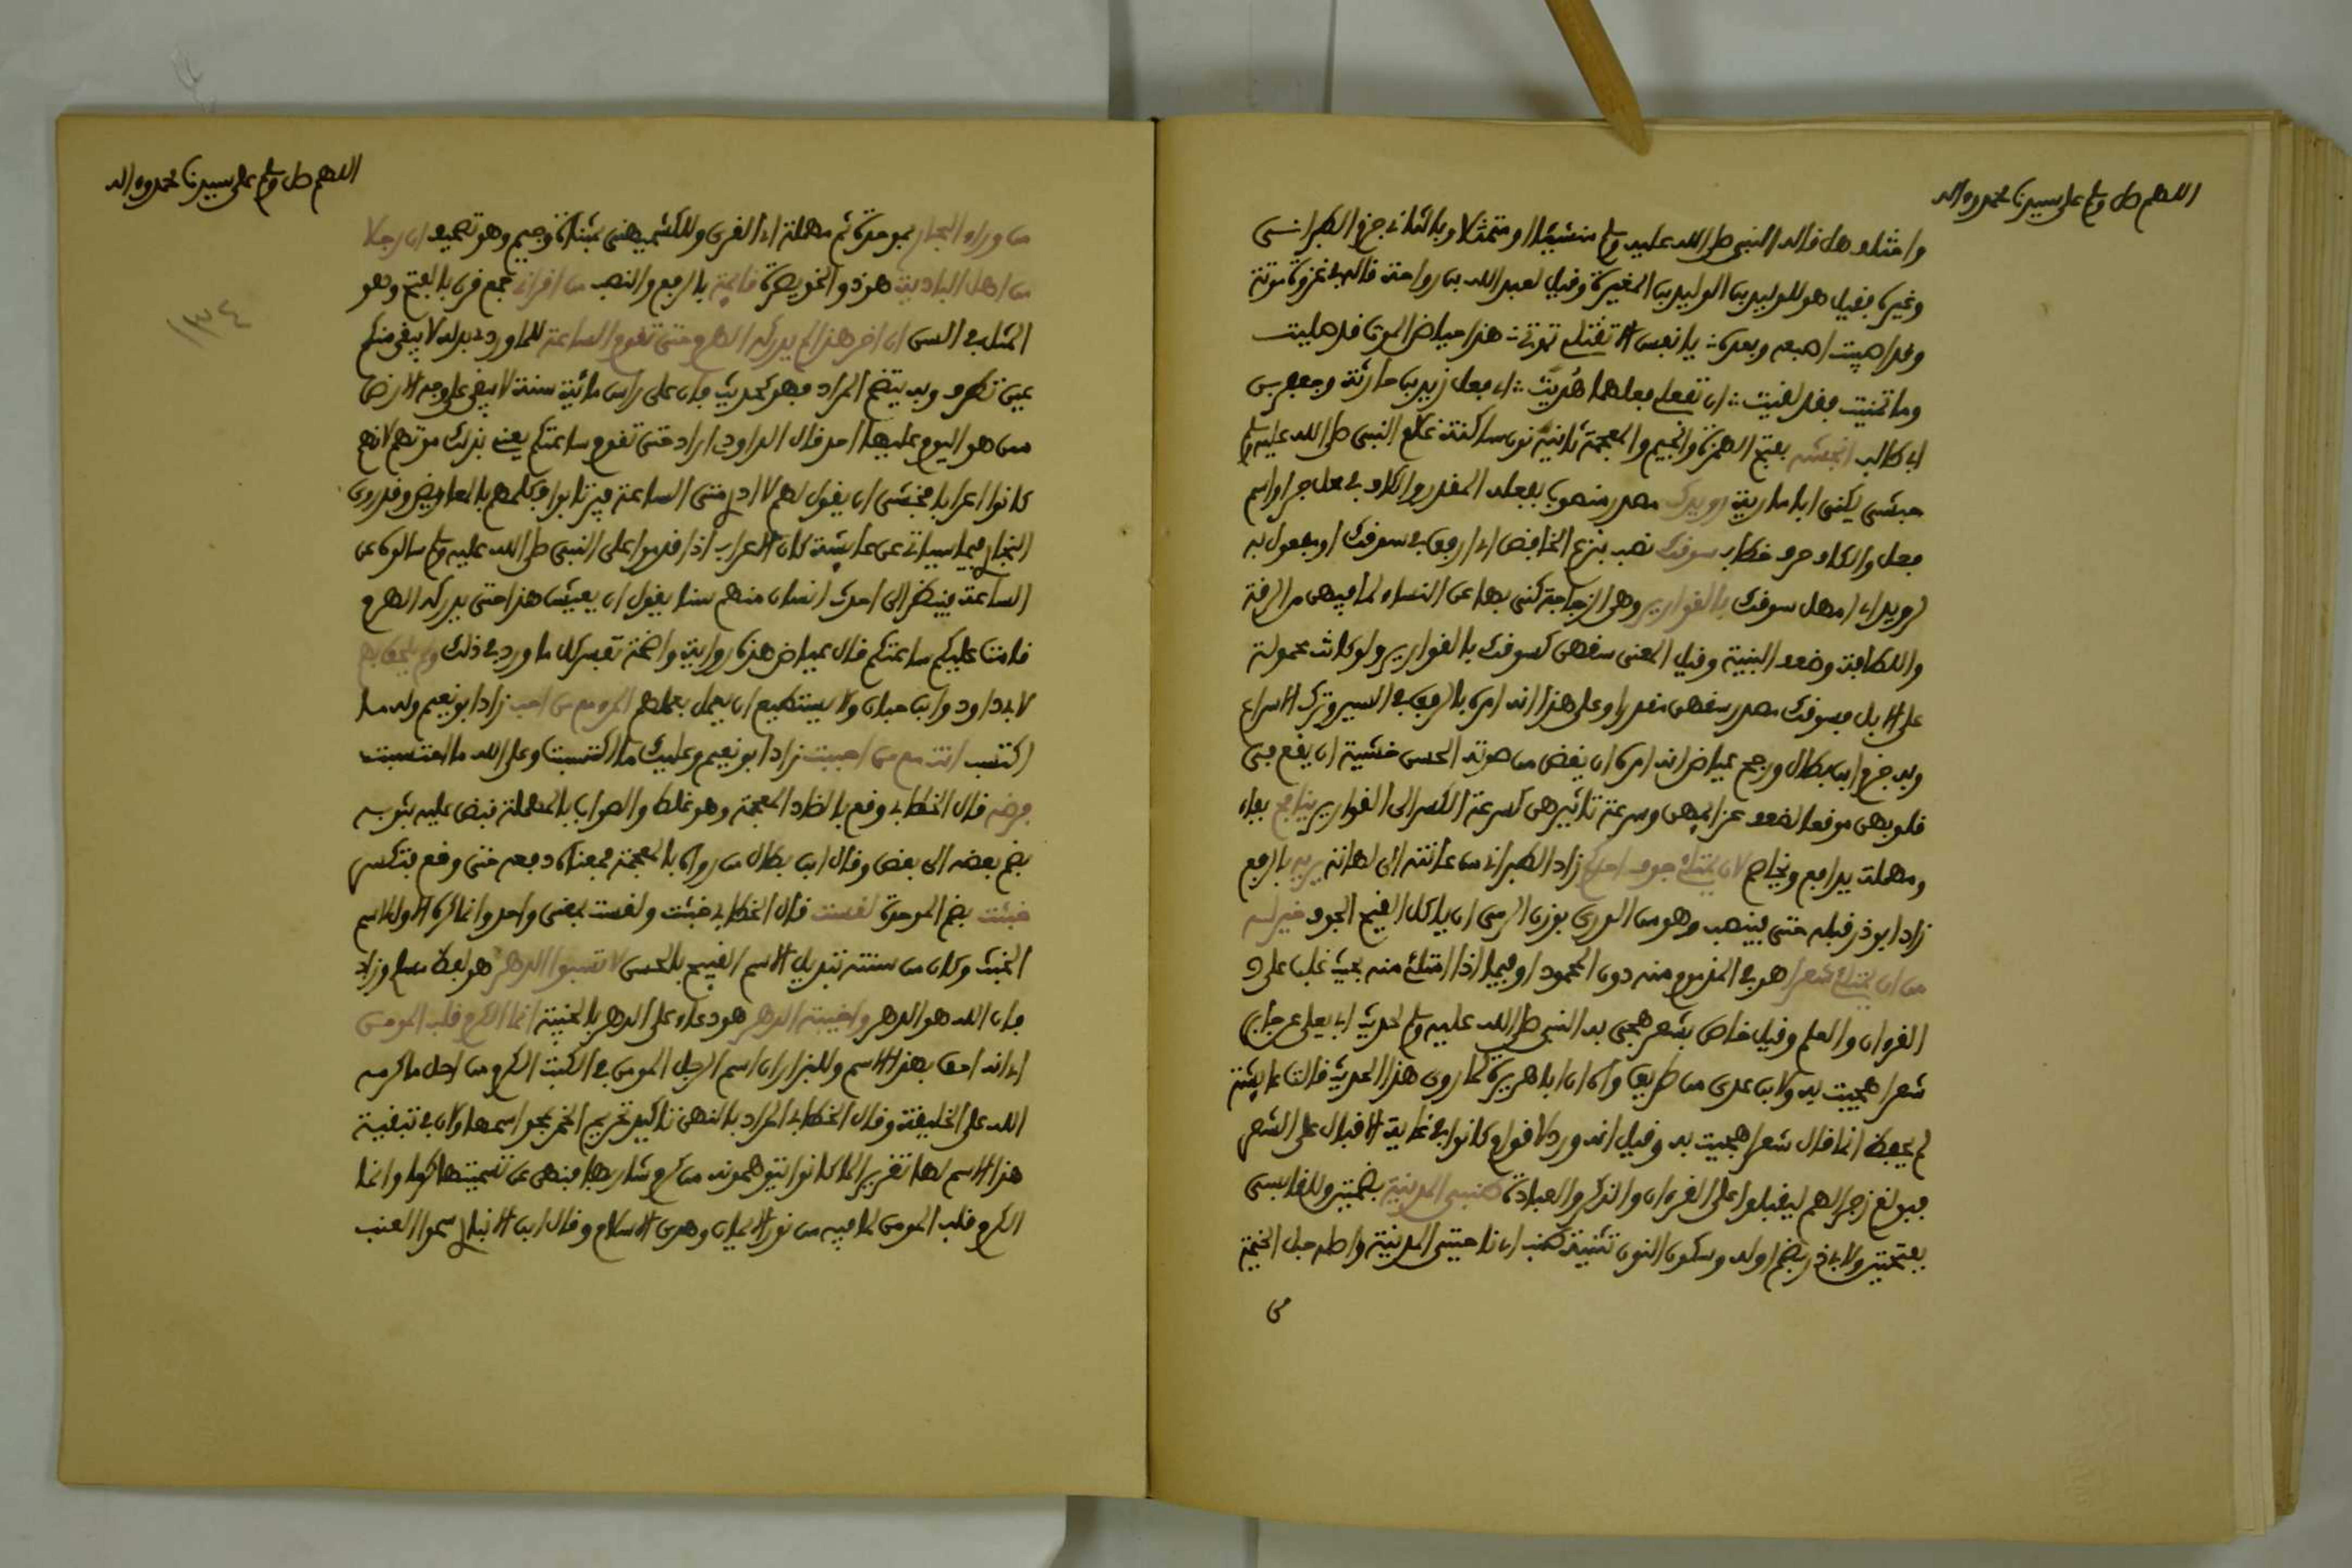 اللهم صل وسلم على سيدنا محمد وءاله
واختلف هل قاله النبي صلى الله عليه وسلم منشئا او متمثلا وبالثاني جزم الطبراني
وغيره فقيل هو للوليد بن الوليد بن المغيرة وقيل لعبد الله بن رواحة قاله في غزوة موتة
وقد اصيبت اصبعه وبعده يا نفس الا تقتلي تموتي هذا حياض الموت قد صليت
وما تمنيت فقد لقيت ان تفعلي فعلهما هديت اي فعل زيد بن حارثة وجعفر بن
ابي طالب انجشه بفتح الهمزة والجيم والمعجمة ثانيه نون ساكنة غلام النبي صلى الله عليه وسلم
حبشي يكنى ابا مارية رويدك مصدر منصوب بفعله المقدر والكاف في محل جر او اسم
فعل والكاف حرف خطاب سوقك نصب بنزع الخافض اي ارفق في سوقك او مفعول به
لرويد اي امهل سوقك بالقوارير وهي الزجاجة كنى بها عن النساء لما فيهن من الرقة
واللطافة وضعف البنية وقيل المعنى سقهن كسوقك بالقوارير ولو كانت محمولة
على الابل فسوقك مصدر سقهن مقدرا وعلى هذا انه امره بالرفق في السير وترك الاسراع
وبه جزم ابن بطال ورجح عياض انه امره ان يغض من صوته الحسن خشية ان يقع في
قلوبهن موقعا لضعف عزائمهن وسرعة تاثيرهن كسرعة الكسر الى القوارير ينافح بفاء
ومهملة يدافع ويخاصم لان يمتلئ جوف احدكم زاد الطبراني من عانته الى لهاته يريه بالرفع
زاد ابو ذر قبله حتى فينصب وهو من الورى بوزن الرمي ان ياكل القيح الجوف خير له
من ان يمتلئ شعرا هو في المذموم منه دون المحمود او فيما اذا امتلئ منه بحيث غلب على
القرءان والعلم وقيل خاص بشعر هجي به النبي صلى الله عليه وسلم لحديث ابي يعلى عن جابر
شعرا هجيت به ولابن عدي من طريق واه ان ابا هريرة لما روى هذا الحديث قالت عايشة
لم يحفظ انما قال شعرا هجيت به وقيل انه ورد لاقوام كانوا في غاية الاقبال على الشعر
فبولغ زجرا لهم ليقبلوا على القرءان والذكر والعبادة طنبي المدينة بضمتين وللقابسي
بفتحتين ولابي ذر بضم اوله وسكون النون تثنية طنب اي ناحيتي المدينة واصله حبل الخيمة
من
اللهم صل وسلم على سيدنا محمد وءاله
١٣٤
من وراء البحار بموحدة ثم مهملة اي القرى وللكشميهني بمثناة وجيم وهو تصحيف ان رجلا
من اهل البادية هو ذو الخويصرة قايمة بالرفع والنصب من اقراني جمع قرن بالفتح وهو
المثل في السن ان اخر هذا لم يدركه الهرم حتى تقوم الساعة للماوردي بدله لا يبقى منكم
عين تطرف وبه يتضح المراد فهو كحديث فان على راس مائة سنة لا يبقى على وجه الارض
ممن هو اليوم عليها احد قال الداودي اراد حتى تقوم ساعتكم يعني بذلك موتهم لانهم
كانوا اعرابا فخشي ان يقول لهم لا ادري متى الساعة فيرتابوا فكلمهم بالمعاريض وقد روى
البخاري فيما سياتي عن عايشة كان الاعراب اذا قدموا على النبي صلى الله عليه وسلم سالوه عن
الساعة فينظر الى احدث انسان منهم سنا يقول ان يعيش هذا حتى يدركه الهرم
قامت عليكم ساعتكم قال عياض هذه رواية واضحة تفسر كل ما ورد في ذلك ولم يلحق بهم
لابي داود وابن حبان ولا يستطيع ان يعمل بعملهم المرء مع من احب زاد ابو نعيم وله ما
اكتسب انت مع من احببت زاد ابو نعيم وعليك ما اكتسبت وعلى الله ما احتسبت
فرضه قال الخطابي وقع بالضاد المعجمة وهو غلط والصواب بالمهملة قبض عليه بثوبه
يضم بعضه الى بعض وقال ابن بطال من رواه بالمعجمة فمعناه دفعه حتى وقع فتكسر
خبثت بضم الموحدة لقست قال الخطابي خبثت ولقست بمعنى واحد وانما كره الاول لاسم
الخبث وكان من سنته تبديل الاسم القبيح بالحسن لا تسبوا الدهر هو لفظ مسلم وزاد
فان الله هو الدهر واخيبة الدهر هو دعاء على الدهر بالخيبة انما الكرم قلب المومن
اي انه احق بهذا الاسم وللبزار ان اسم الرجل المومن في الكتب الكرم من اجل ما اكرمه
الله على الخليقة وقال الخطابي المراد بالنهي تاكيد تحريم الخمر بمحو اسمها ولان في تبقية
هذا الاسم لها تقرير الما كانوا يتوهمونه من كرم شاربها فنهى عن تسميتها كرما وانما
الكرم قلب المومن لما فيه من نور الايمان وهدى الاسلام وقال ابن الانباري سموا العنب